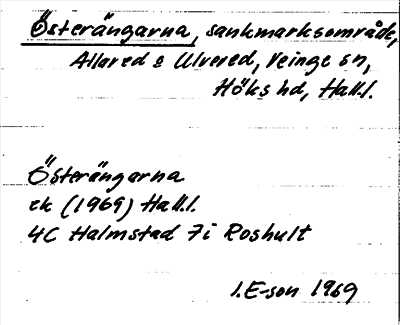 Österängarna, sankmarksområde,
Allared o Ulvered, Veinge sn,
Höks hd, Hall.
Österängarna
ek (1969) Hall.
4C Halmstad 7i Roshult
I.E-son 1969